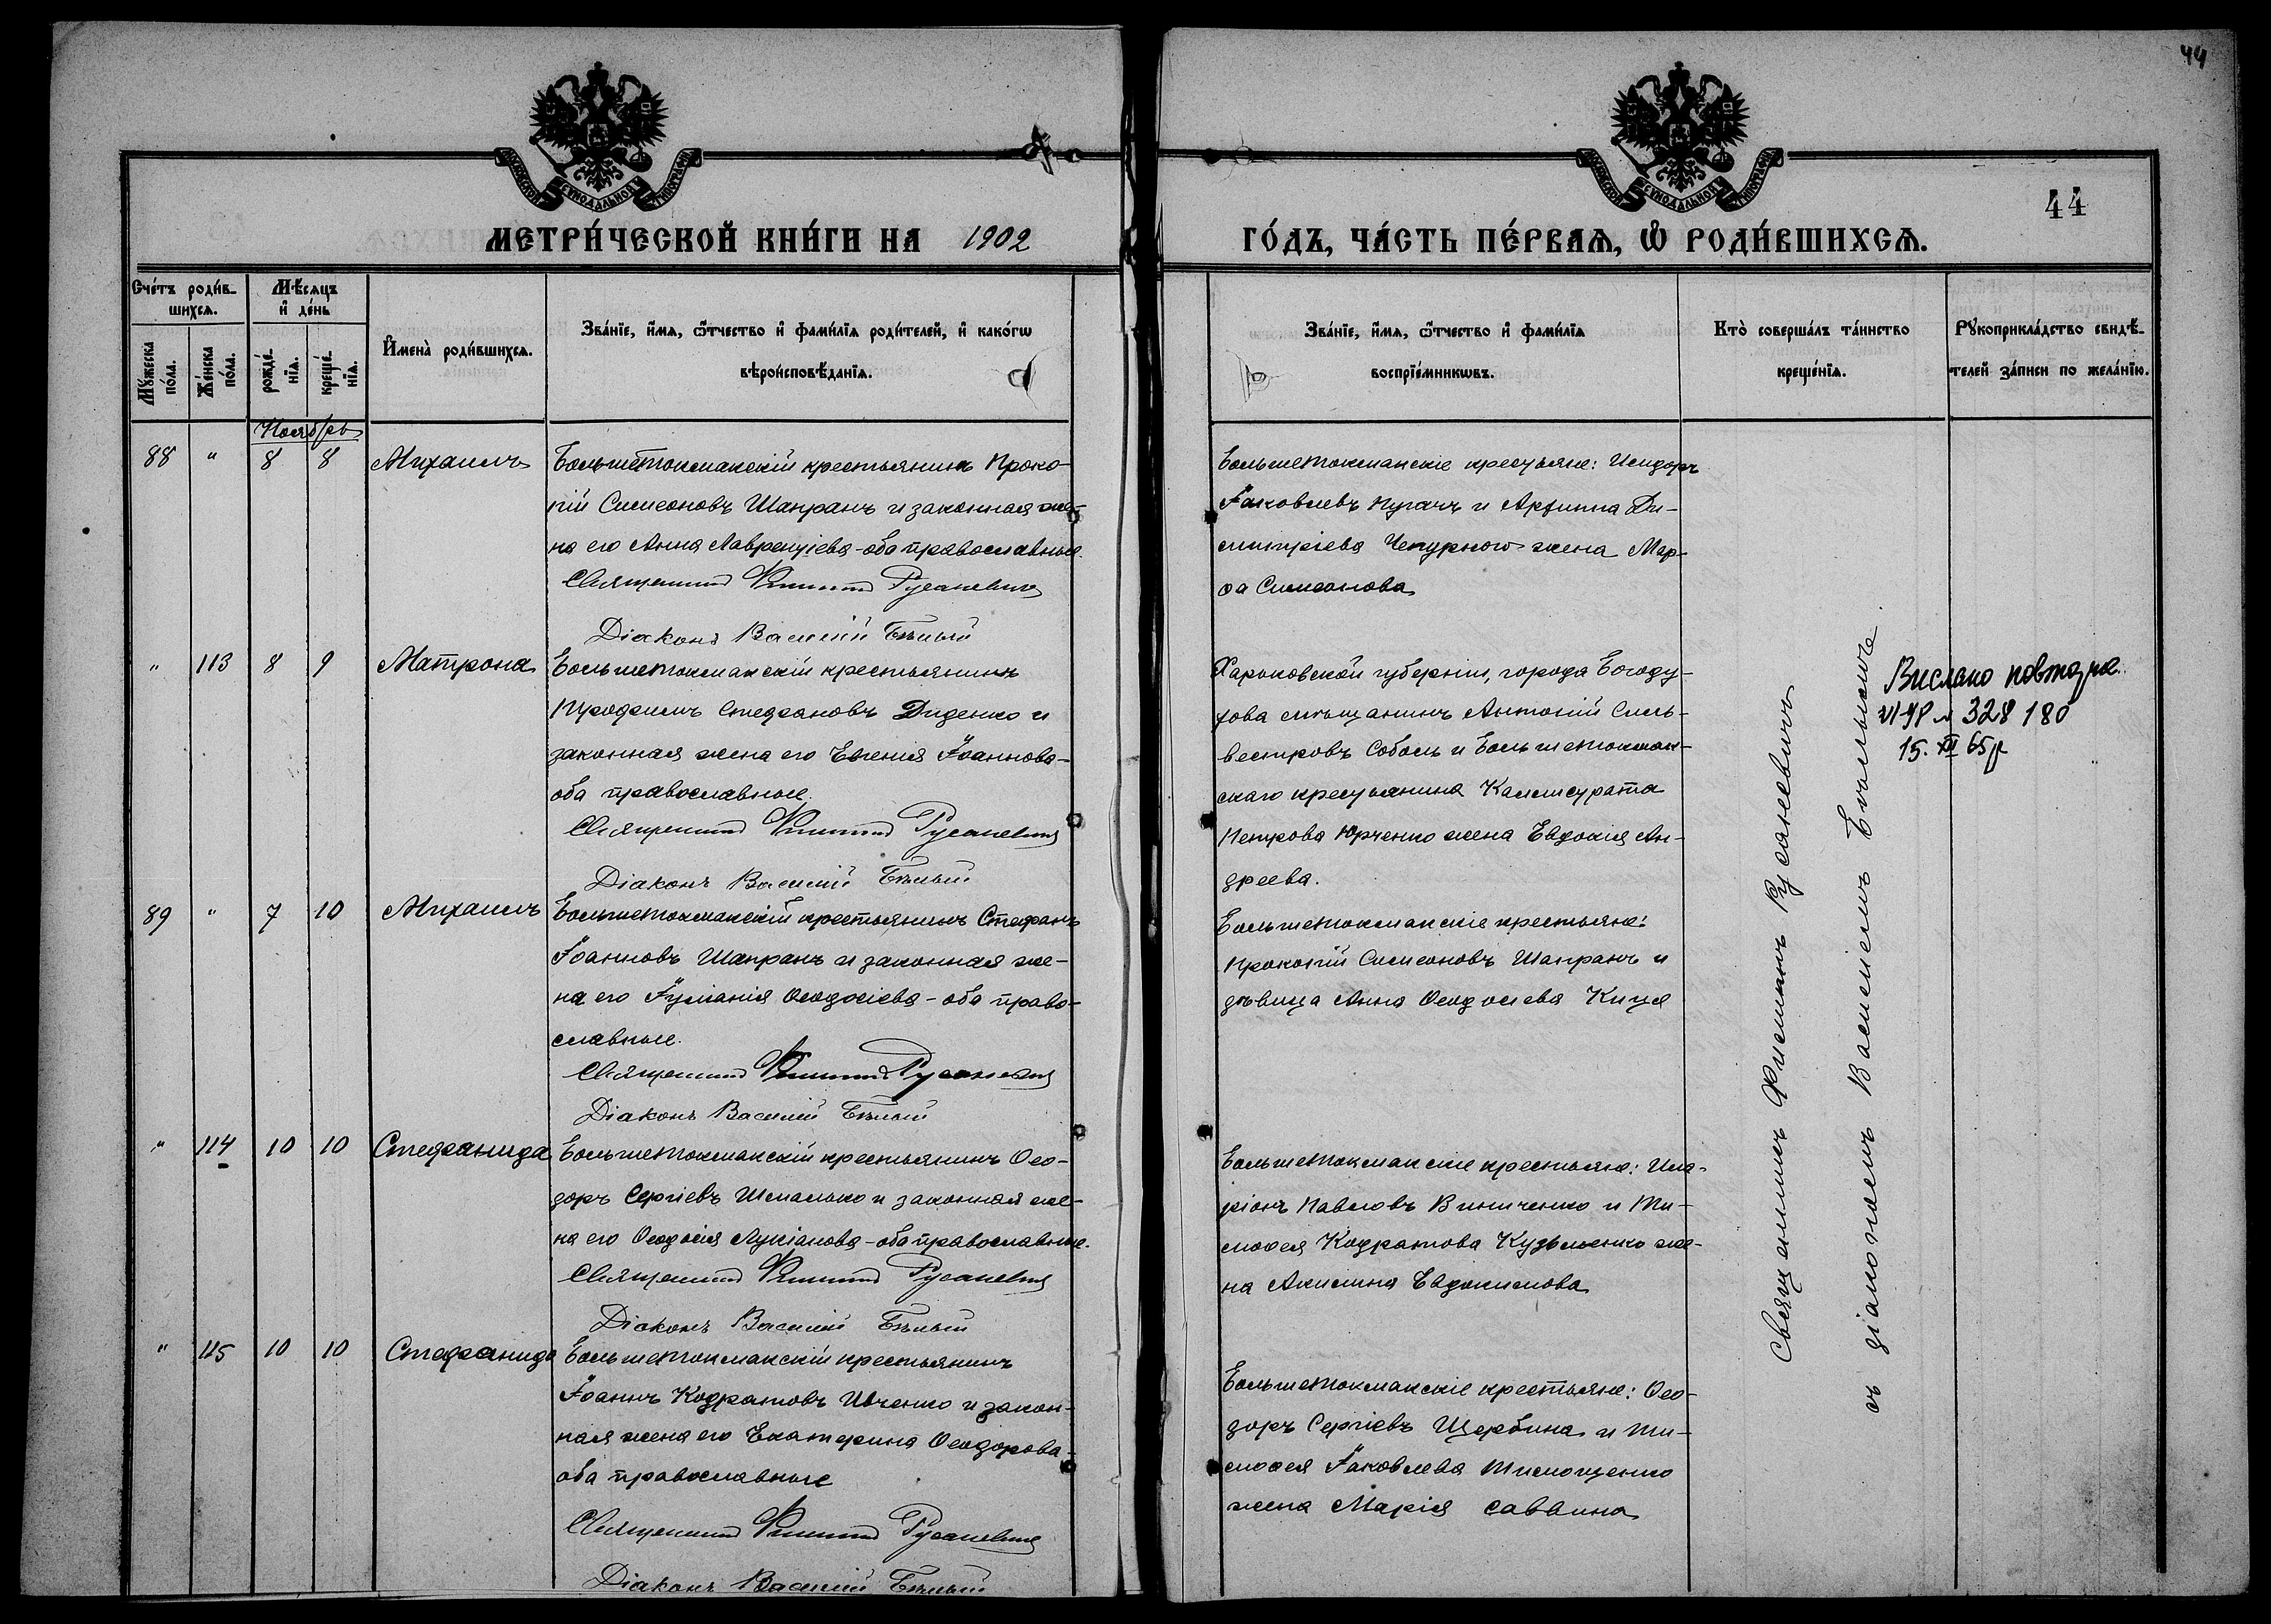 44
44
МЕТРИ́ЧЕСКОЙ КНИ́ГИ НА 1902
ГО́ДЪ, ЧА́СТЬ ПЕ́РВАѦ, Ѡ҆ РОДИ́ВШИХСѦ.
Сче́тъ роди́в-
шихсѧ.
Мꙋжеска по́ла.
Же́нска по́ла.
Мѣ́сѧцъ
и҆ де́нь
рожде́-
нїѧ.
креще́-
нїѧ.
И҆мена̀ роди́вшихсѧ.
Зва́нїе, и҆́мѧ, ѻ҆́тчество и҆ фами́лїѧ роди́телей, и҆ како́гѡ
вѣроисповѣ́данїѧ.
Зва́нїе, и҆́мѧ, ѻ҆́тчество и҆ фами́лїѧ
воспрїе́мникѡвъ.
Кто̀ соверша́лъ та́инство
креще́нїѧ.
Рꙋкоприкла́дство свидѣ́-
телей за́писи по жела́нїю.
Ноябрь
88 " 8 8 Михаилъ
Большетокмакскій крестьянинъ Проко-
пій Симеоновъ Шапранъ и законная же-
на его Анна Лаврентіева - оба православные.
Священникъ Филиппъ Русаневичъ
Діаконъ Василій Бѣлый
Большетокмакскіе крестьяне: Исидоръ
Іаковлевъ Пугачъ и Ди-
митріева жена Мар-
ѳа Симеонова
" 113 8 9 Матрона
Большетокмакскій крестьянинъ
Трофимъ Стефановъ Диденко и
законная жена его Евгенія Іоаннова -
оба православные.
Священникъ Филиппъ Русаневичъ
Діаконъ Василій Бѣлый
Харьковской губерніи, города Богоду-
хова мѣщанинъ Антоній Силь-
вестровъ Соболь и Большетокмак-
скаго крестьянина Каллистрата
Петрова Юрченко жена Евдокія Ан-
дреева.
Вислано повторне
328180
15. XII 65р
89 " 7 10 Михаилъ
Большетокмакскій крестьянинъ Стефанъ
Іоанновъ Шапранъ и законная же-
на его Іуліанія Ѳеодосіева - оба право-
славные.
Священникъ Филиппъ Русаневичъ
Діаконъ Василій Бѣлый
Большетокмакскіе крестьяне:
Прокопій Симеоновъ Шапранъ и
дѣвица Анна Ѳеодосіева Куця
" 114 10 10 Стефанида
Большетокмакскій крестьянинъ Ѳео-
доръ Сергіевъ Шмалько и законная же-
на его Ѳеодосія Лукіанова - оба православные.
Священникъ Филиппъ Русаневичъ
Діаконъ Василій Бѣлый
Большетокмакскіе крестьяне: Ила-
ріонъ Павловъ Винниченко и Ти-
моѳея Кодратова Кузьменко же-
на Акилина Евдокимова
" 115 10 10 Стефанида
Большетокмакскій крестьянинъ
Іоаннъ Кодратовъ Ивченко и закон-
ная жена его Екатерина Ѳеодорова -
оба православные
Священникъ Филиппъ Русаневичъ
Діаконъ Василій Бѣлый
Большетокмакскіе крестьяне: Ѳео-
доръ Сергіевъ Щербина и Ти-
моѳея Іаковлева Тимошенко
жена Марія Саввина
Священникъ Филиппъ Русаневичъ
съ діакономъ Василіемъ Бѣлымъ